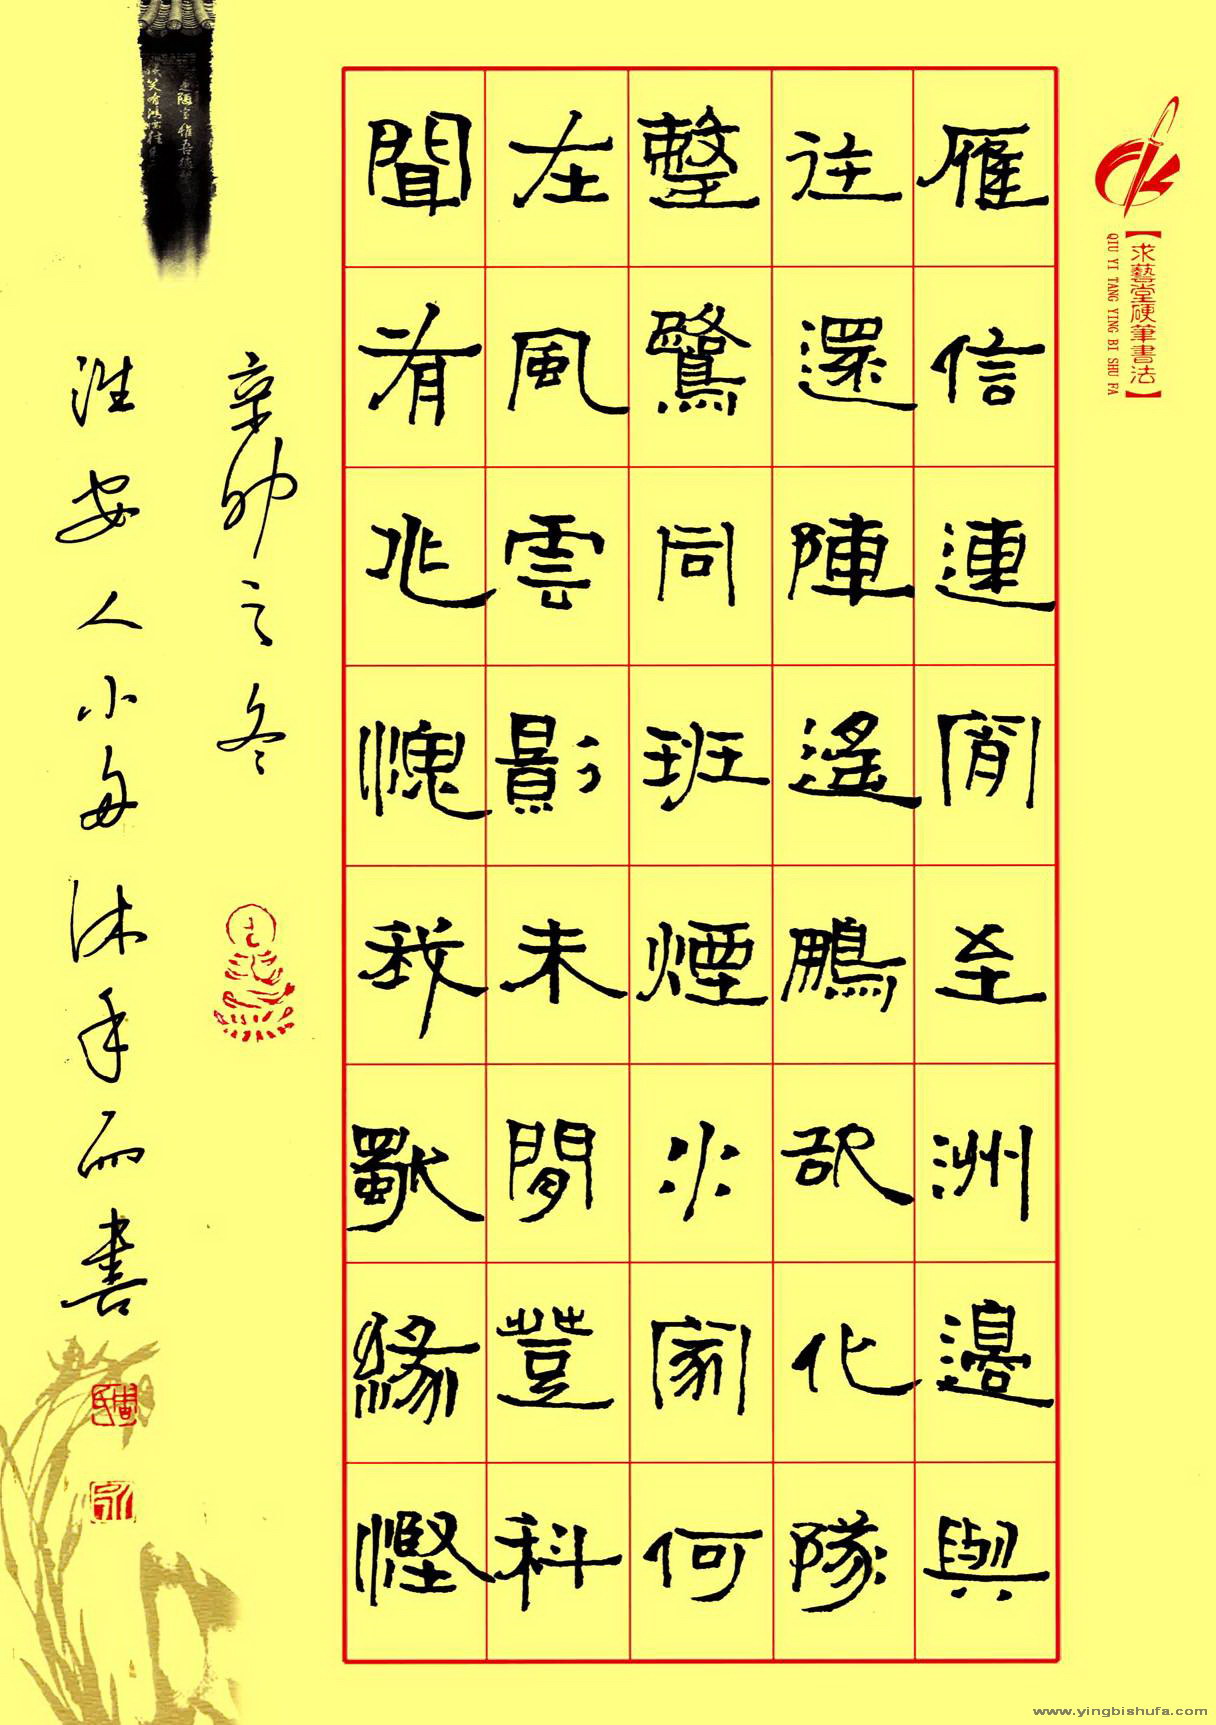 【求藝堂硬筆書法】
QIU YI TANG YING BI SHU FA
雁信連宵至洲邊與
往還陣遙鵬欲化隊
整鷺同班煙水家何
在風雲影未閒登科
聞有兆愧我獨緣慳
辛卯之冬
淮安人小每沐手而書
www.yingbishufa.com